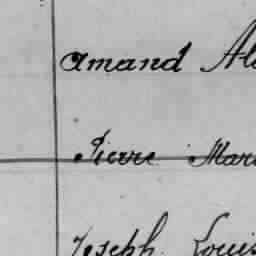 amand Al
Pierre Mari
Joseph Louis